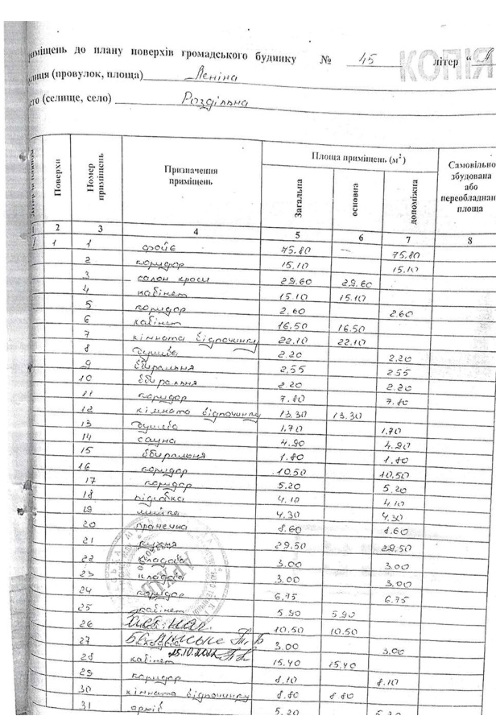 приміщень до плану поверхів громадського будинку № 45 літер "
КОПІЯ
(провулок, площа) Леніна
(селище, село) Роздільна
Поверхи Номер приміщень Призначення приміщень Площа приміщень (м²) Самовільно збудована або переобладнана площа
Загальна основна допоміжна
2 3 4 5 6 7 8
1 1 фойє 75.80 — 75.80
2 коридор 15.10 15.10
3 салон краси 29.60 29.60
4 кабінет 15.10 15.10
5 коридор 2.60 2.60
6 кабінет 16.50 16.50
7 кімната відпочинку 22.10 22.10
8 душова 2.20 2.20
9 вбиральня 2.55 2.55
10 вбиральня 2.20 2.20
11 коридор 7.80 7.80
12 кімната відпочинку 13.30 13.30
13 душова 1.70 1.70
14 сауна 4.90 4.90
15 вбиральня 1.80 1.80
16 коридор 10.50 10.50
17 коридор 5.20 5.20
18 підсобка 4.10 4.10
19 мийка 4.30 4.30
20 пральня 8.60 8.60
21 кухня 29.50 29.50
22 кладова 3.00 3.00
23 кладова 3.00 3.00
24 коридор 6.75 6.75
25 кабінет 5.90 5.90
26 10.50 10.50
27 3.00 3.00
28 кабінет 15.40 15.40
29 коридор 8.10 8.10
30 кімната відпочинку 8.80 8.80
31 архів 5.20